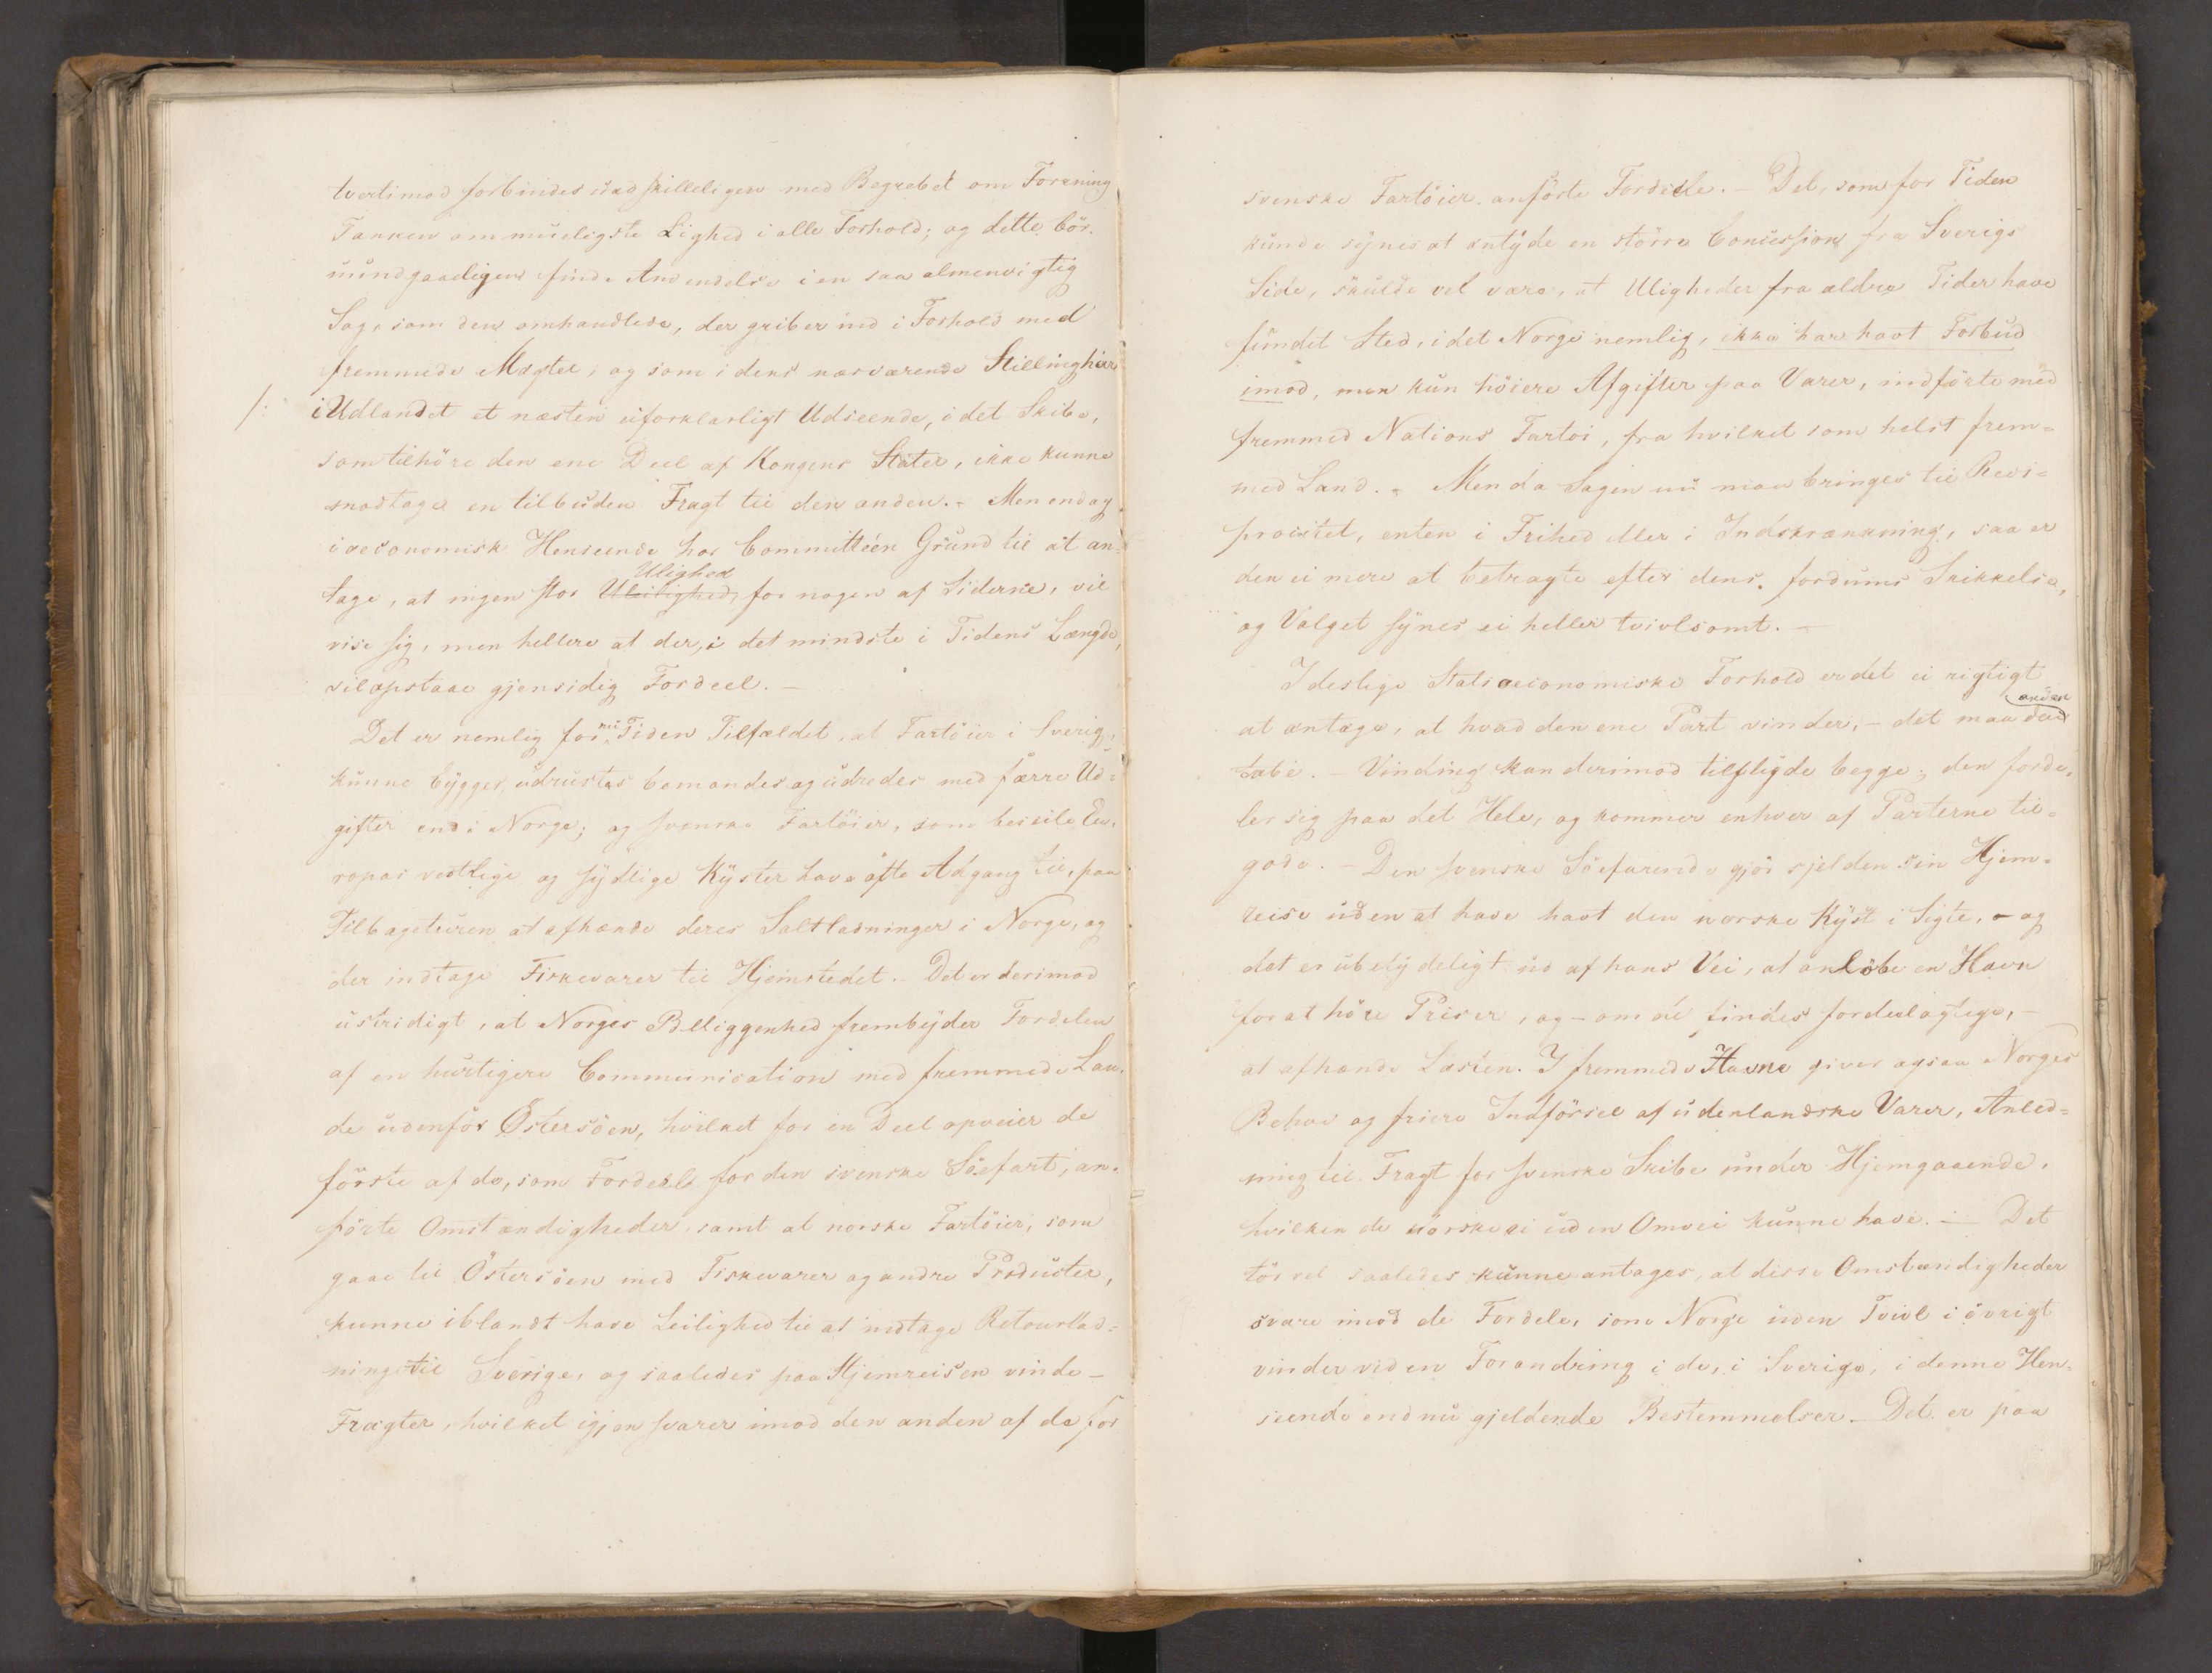 tvertimod forbindes uadskilleligen med Begrebet om Forening
Tanken om mueligste Lighed i alle Forhold; og dette bör
uundgaaeligen finde Anvendelse i en saa almenvigtig
Sag, som den omhandlede, der griber ind i Forhold med
fremmede Magter, og som i dens nærværende Stilling har
/: i Udlandet et næsten uforklarligt Udseende, idet Skibe,
som tilhöre den ene Deel af Kongens Stater, ikke kunne
modtage en tilbuden Fragt til den anden. – Men endog
i oeconomisk Henseende har Committéen Grund til at an-
tage, at ingen stor Uleilighed, Ulighed for nogen af Siderne, vil
vise sig, men hellere at der, i det mindste i Tidens Længde,
vil opstaae gjensidig Fordeel. –
Det er nemlig for nu Tiden Tilfældet, at Fartöier i Sverig,
kunne bygges, udrustes bemandes og udredes med færre Ud-
gifter end i Norge; og svenske Fartöier, som beseile Eu-
ropas vestlige og sydlige Kyster have ofte Adgang til, paa
Tilbageturen at afhænde deres Saltladninger i Norge, og
der indtage Fiskevarer til Hjemstedet. – Det er derimod
ustridigt, at Norges Belliggenhed frembyder Fordelen
af en hurtigere Communication med fremmede Lan-
de udenfor Östersöen, hvilket for en Deel opveier de
förste af de, som Fordeele for den svenske Söefart, an-
förte Omstændigheder, samt at norske Fartöier, som
gaae til Östersöen med Fiskevarer og andre Producter,
kunne iblandt have Leilighed til at indtage Retourlad-
ning til Sverige, og saaledes paa Hjemreisen vinde –
Fragter, hvilket igjen svarer imod den anden af de for
svenske Fartöier anförte Fordeele. – Det, som for Tiden
kunde synes at antyde en större Concession fra Sverigs
Side, skulde vel være, at Uligheder fra ældre Tider have
fundet Sted, idet Norge nemlig, ikke har havt Forbud
imod, men kun höiere Afgifter paa Varer, indförte med
fremmed Nations Fartöi, fra hvilket som helst frem-
med Land. – Men da Sagen nu maa bringes til Reci-
procitet, enten i Frihed eller i Indskrænkning, saa er
den ei mere at betragte efter dens fordums Skikkelse,
og Valget synes ei heller tvivlsomt. –
I deslige Statsoeconomiske Forhold er det ei rigtigt
at antage, at hvad den ene Part vinder, – det maa den anden
tabe. – Vinding kan derimod tilflyde begge; den forde-
ler sig paa det Hele, og kommer enhver af Parterne til-
gode. – Den svenske Söefarende gjör sjelden sin Hjem-
reise uden at have havt den norske Kyst i Sigte, – og
det er ubetydeligt ud af hans Vei, at anlöbe en Havn
for at höre Priser, og – om de findes fordeelagtige, –
at afhænde Lasten. I fremmede Havne giver ogsaa Norges
Behov og friere Indförsel af udenlandske Varer, Anled-
ning til Fragt for svenske Skibe under Hjemgaaende,
hvilken de norske ei uden Omvei kunne have. – Det
tör vel saaledes kunne antages, at disse Omstændigheder
svare imod de Fordele, som Norge uden Tvivl i övrigt
vinder ved en Forandring i de, i Sverige, i denne Hen-
seende endnu gjeldende Bestemmelser. – Det er paa